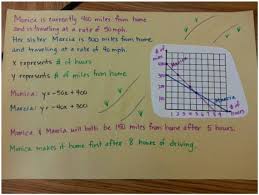 Monica is currently 400 miles from home
and is traveling at a rate of 50 mph.
Her sister Marcia is 300 miles from home
and traveling at a rate of 40 mph.
x represents # of hours
y represents # of miles from home
Monica: y=-50x+400
Marcia: y=-40x+300
# of miles
Monica
Marcia
1 2 3 4 5 6 7 8 9
# of hours
Monica & Marcia will both be 150 miles from home after 5 hours.
Monica makes it home first after 8 hours of driving.